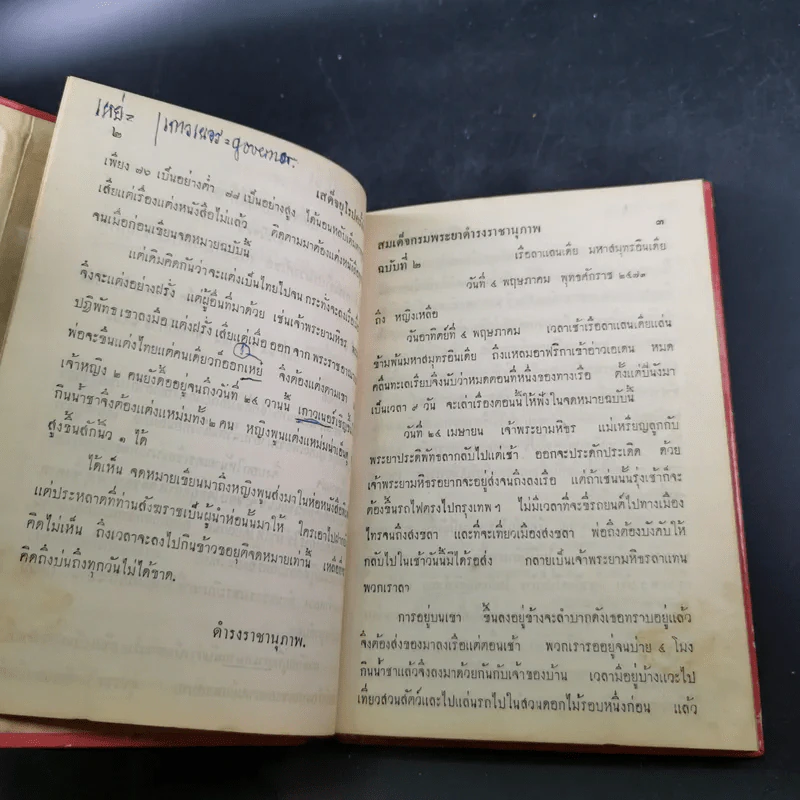 เหย่= เกาวเนอร=governor.
๒
เสด็จยุโรป
เพียง ๗๐ เป็นอย่างต่ำ ๘๘ เป็นอย่างสูง ได้นอนหลับเต็ม
เสียแต่เรื่องแต่งหนังสือไม่แล้ว คิดตามมาต้องแต่งหนังสือ
จนเมื่อก่อนเขียนจดหมายฉบับนี้
แต่เดิมคิดกันว่าจะแต่งเป็นไทยไปจน กระทั่งจะลง
จึงจะแต่งอย่างฝรั่ง แต่ผู้อื่นที่มาด้วย เช่นเจ้าพระยามหิธร
ปฏิพัทธ เขาลงมือ แต่งฝรั่ง เสียแต่เมื่อ ออก จาก พระราชอาณา
พ่อจะขืนแต่งไทยแต่คนเดียวก็ออกเหย่ จึงต้องแต่งตามเขา
เจ้าหญิง ๒ คนยังดื้ออยู่จนถึงวันที่ ๒๕ วานนี้ เกาวเนอร์เชิญ
กินน้ำชาจึงต้องแต่งแหม่มทั้ง ๒ คน หญิงพูนแต่งแหม่มน่าเอ็นดู
สูงขึ้นสักนิ้ว ๑ ได้
ได้เห็น จดหมายเขียนมาถึงหญิงพูนส่งมาในห่อหนังสือพิมพ์
แต่ประหลาดที่ท่านสังฆราชเป็นผู้นำห่อนั้นมาให้ ใครเอาไป
คิดไม่เห็น ถึงเวลาจะลงไปกินข้าวขอยุติจดหมายเท่านี้
คิดถึงบ่นถึงทุกวันไม่ได้ขาด.
ดำรงราชานุภาพ.
สมเด็จกรมพระยาดำรงราชานุภาพ ๓
ฉบับที่ ๒ เรือลาแลนเดีย มหาสมุทรอินเดีย
วันที่ ๔ พฤษภาคม พุทธศักราช ๒๔๗๓
ถึง หญิงเหลือ
วันอาทิตย์ที่ ๔ พฤษภาคม เวลาเช้าเรือลาแลนเดียแล่น
ข้ามพ้นมหาสมุทรอินเดีย ถึงแหลมอาฟริกาเข้าอ่าวเอเดน หมด
คลื่นทะเลเรียบจึงนับว่าหมดตอนที่หนึ่งของทางเรือ ตั้งแต่ปีนังมา
เป็นเวลา ๙ วัน จะเล่าเรื่องตอนนี้ให้ฟังในจดหมายฉบับนี้
วันที่ ๒๕ เมษายน เจ้าพระยามหิธร แม่เหรียญลูกกับ
พระยาประดิพัทธลากลับไปแต่เช้า ออกจะประดักประเดิด ด้วย
เจ้าพระยามหิธรอยากจะอยู่ส่งจนถึงลงเรือ แต่ถ้าเช่นนั้นรุ่งเช้าก็จะ
ต้องขึ้นรถไฟตรงไปกรุงเทพ ฯ ไม่มีเวลาที่จะขี่รถยนต์ไปทางเมือง
ไทรจนถึงสงขลา และที่จะเที่ยวเมืองสงขลา พ่อถึงต้องบังคับให้
กลับไปในเช้าวันนี้มิได้รอส่ง กลายเป็นเจ้าพระยามหิธรลาแทน
พวกเราลา
การอยู่บนเขา ขึ้นลงอยู่ข้างจะลำบากดังเธอทราบอยู่แล้ว
จึงต้องส่งของมาลงเรือแต่ตอนเช้า พวกเรารออยู่จนบ่าย ๔ โมง
กินน้ำชาแล้วจึงลงมาด้วยกันกับเจ้าของบ้าน เวลามีอยู่บ้างแวะไป
เที่ยวสวนสัตว์และไปแล่นรถไปในสวนดอกไม้รอบหนึ่งก่อน แล้ว